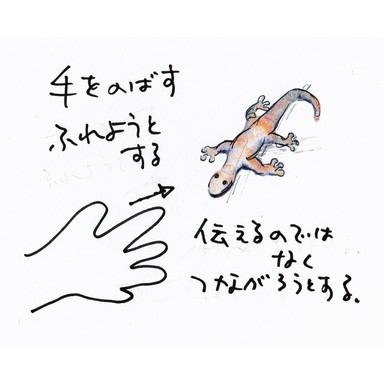 手をのばす
ふれようと
する
伝えるのでは
なく
つながろうとする。